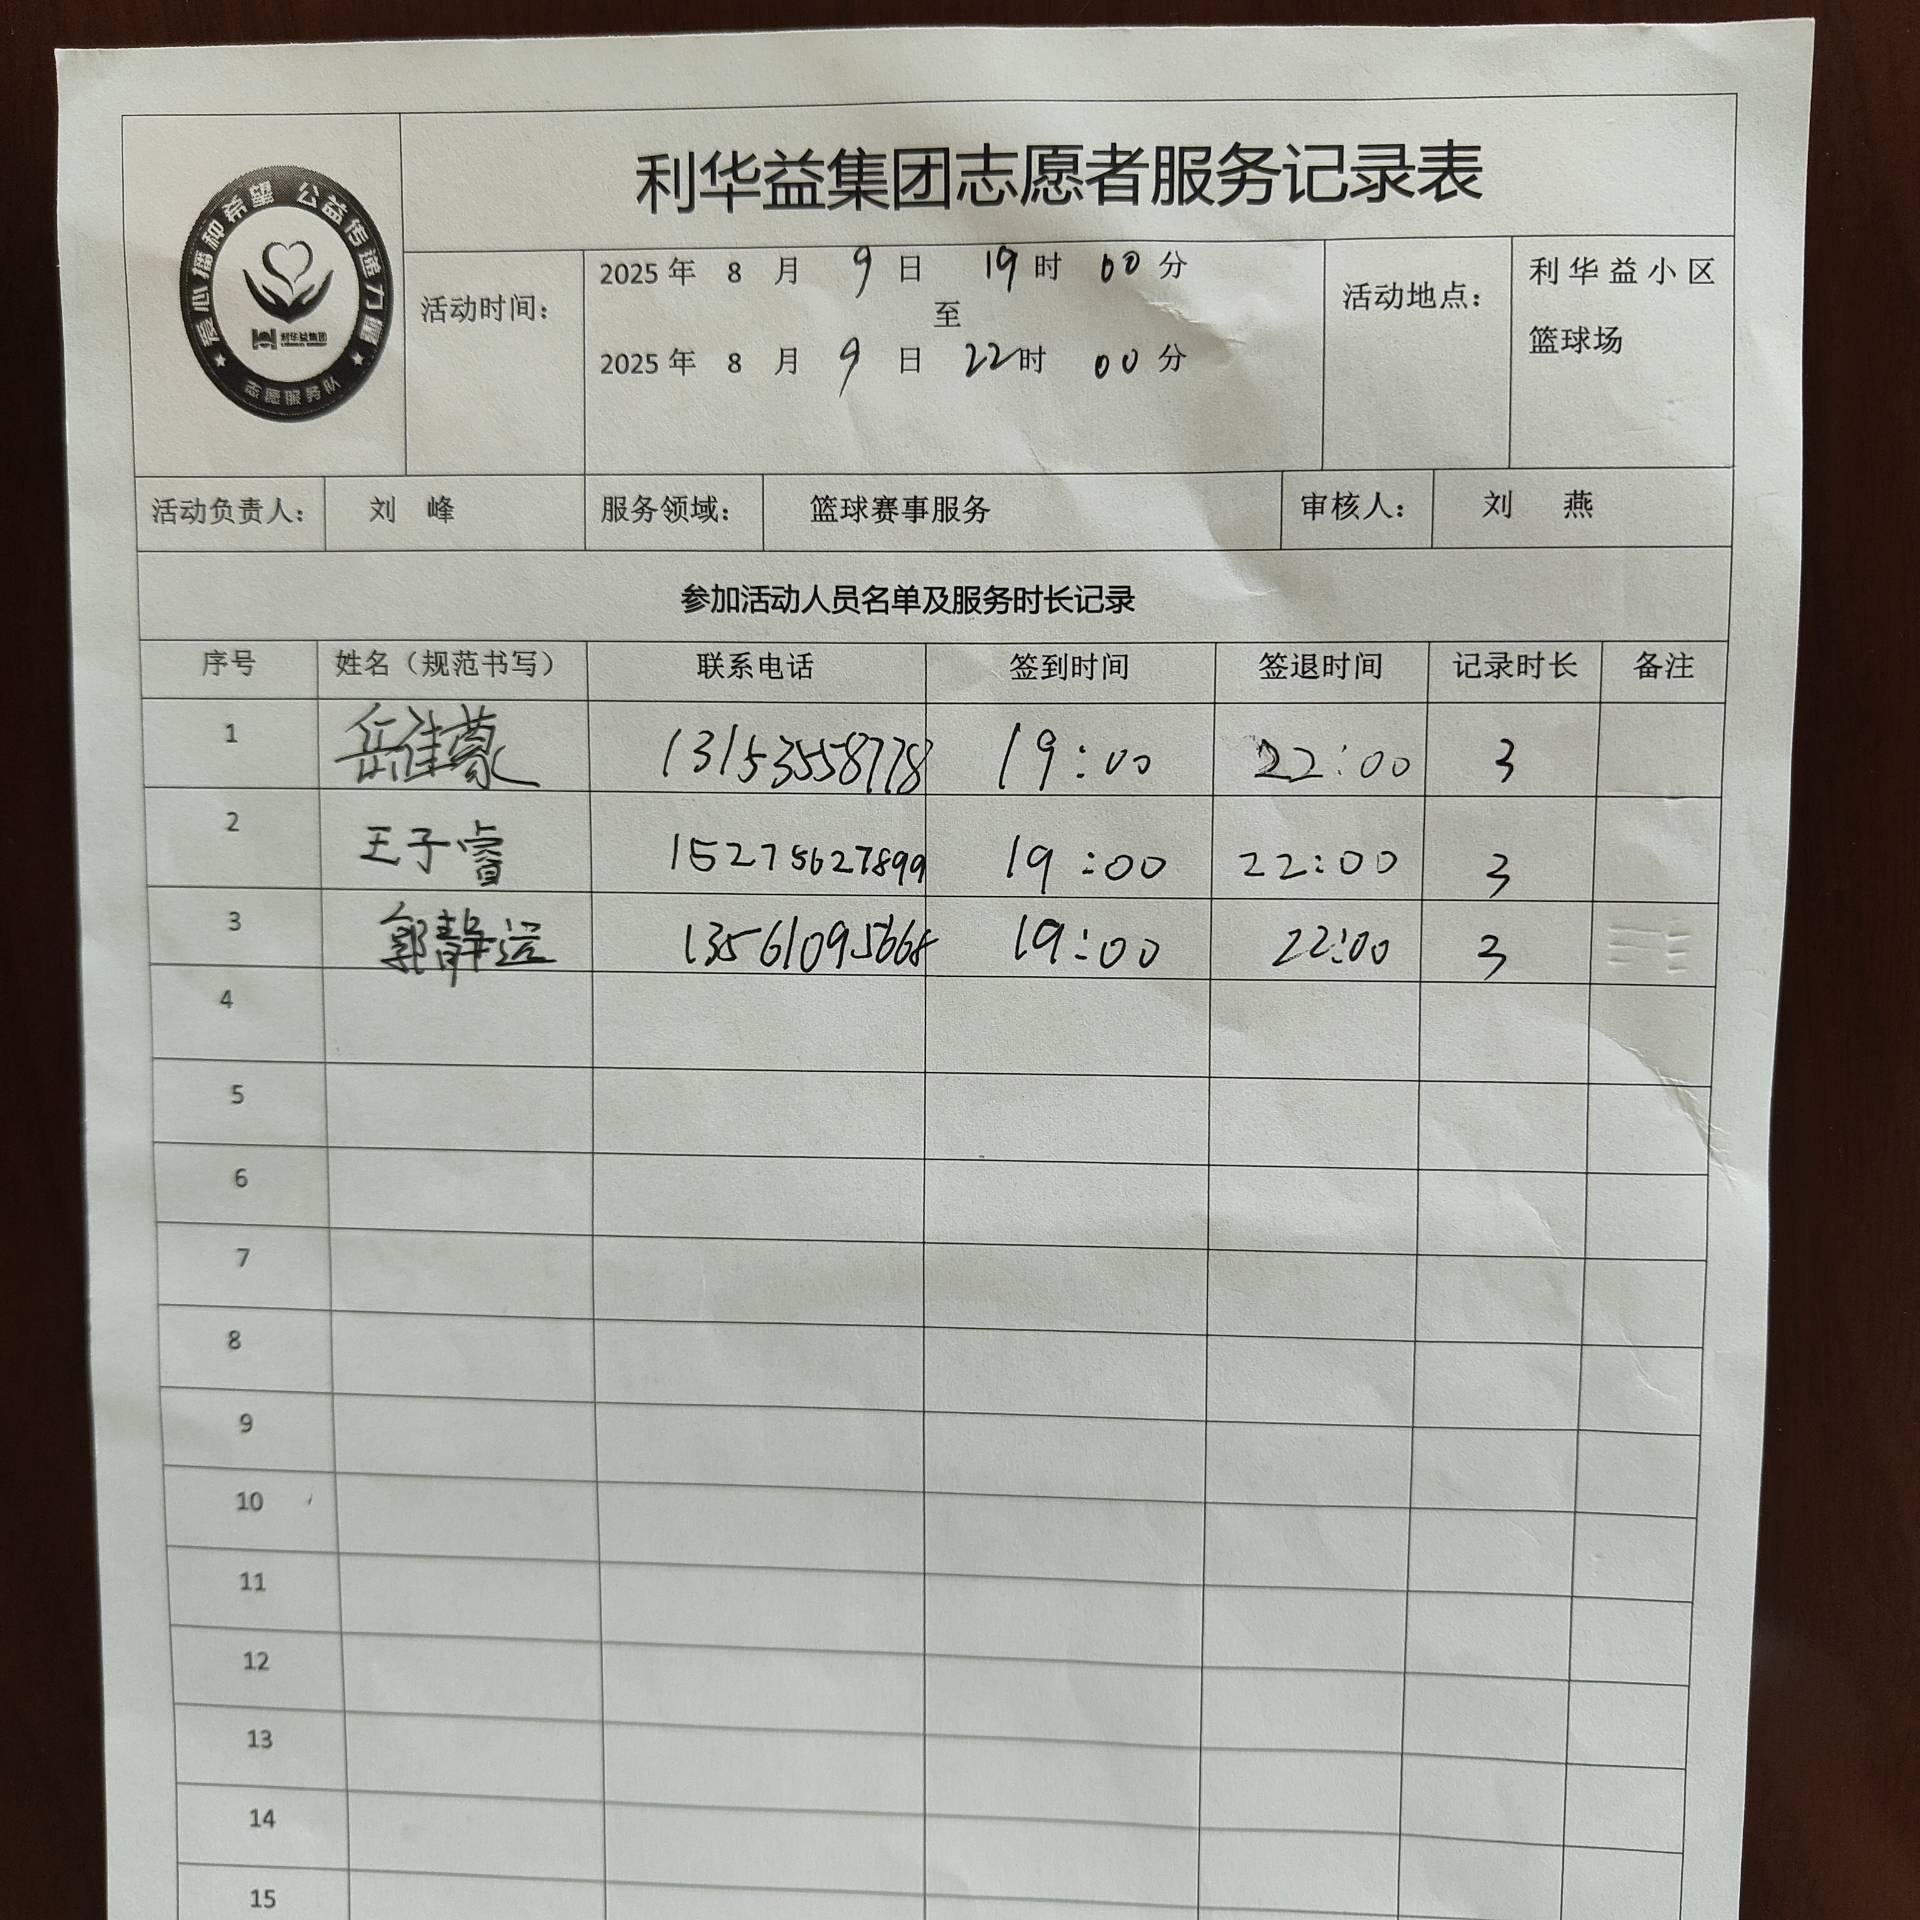 利华益集团志愿者服务记录表
爱心播种希望 公益传递力量
利华益集团
志愿服务队
活动时间：
2025 年 8 月 9 日 19 时 00 分
至
2025 年 8 月 9 日 22 时 00 分
活动地点：
利华益小区
篮球场
活动负责人： 刘 峰 服务领域： 篮球赛事服务 审核人： 刘 燕
参加活动人员名单及服务时长记录
序号 姓名（规范书写） 联系电话 签到时间 签退时间 记录时长 备注
1 岳佳蒙 13153558778 19:00 22:00 3
2 王子睿 15275627899 19:00 22:00 3
3 郭静远 13561095668 19:00 22:00 3
4
5
6
7
8
9
10
11
12
13
14
15